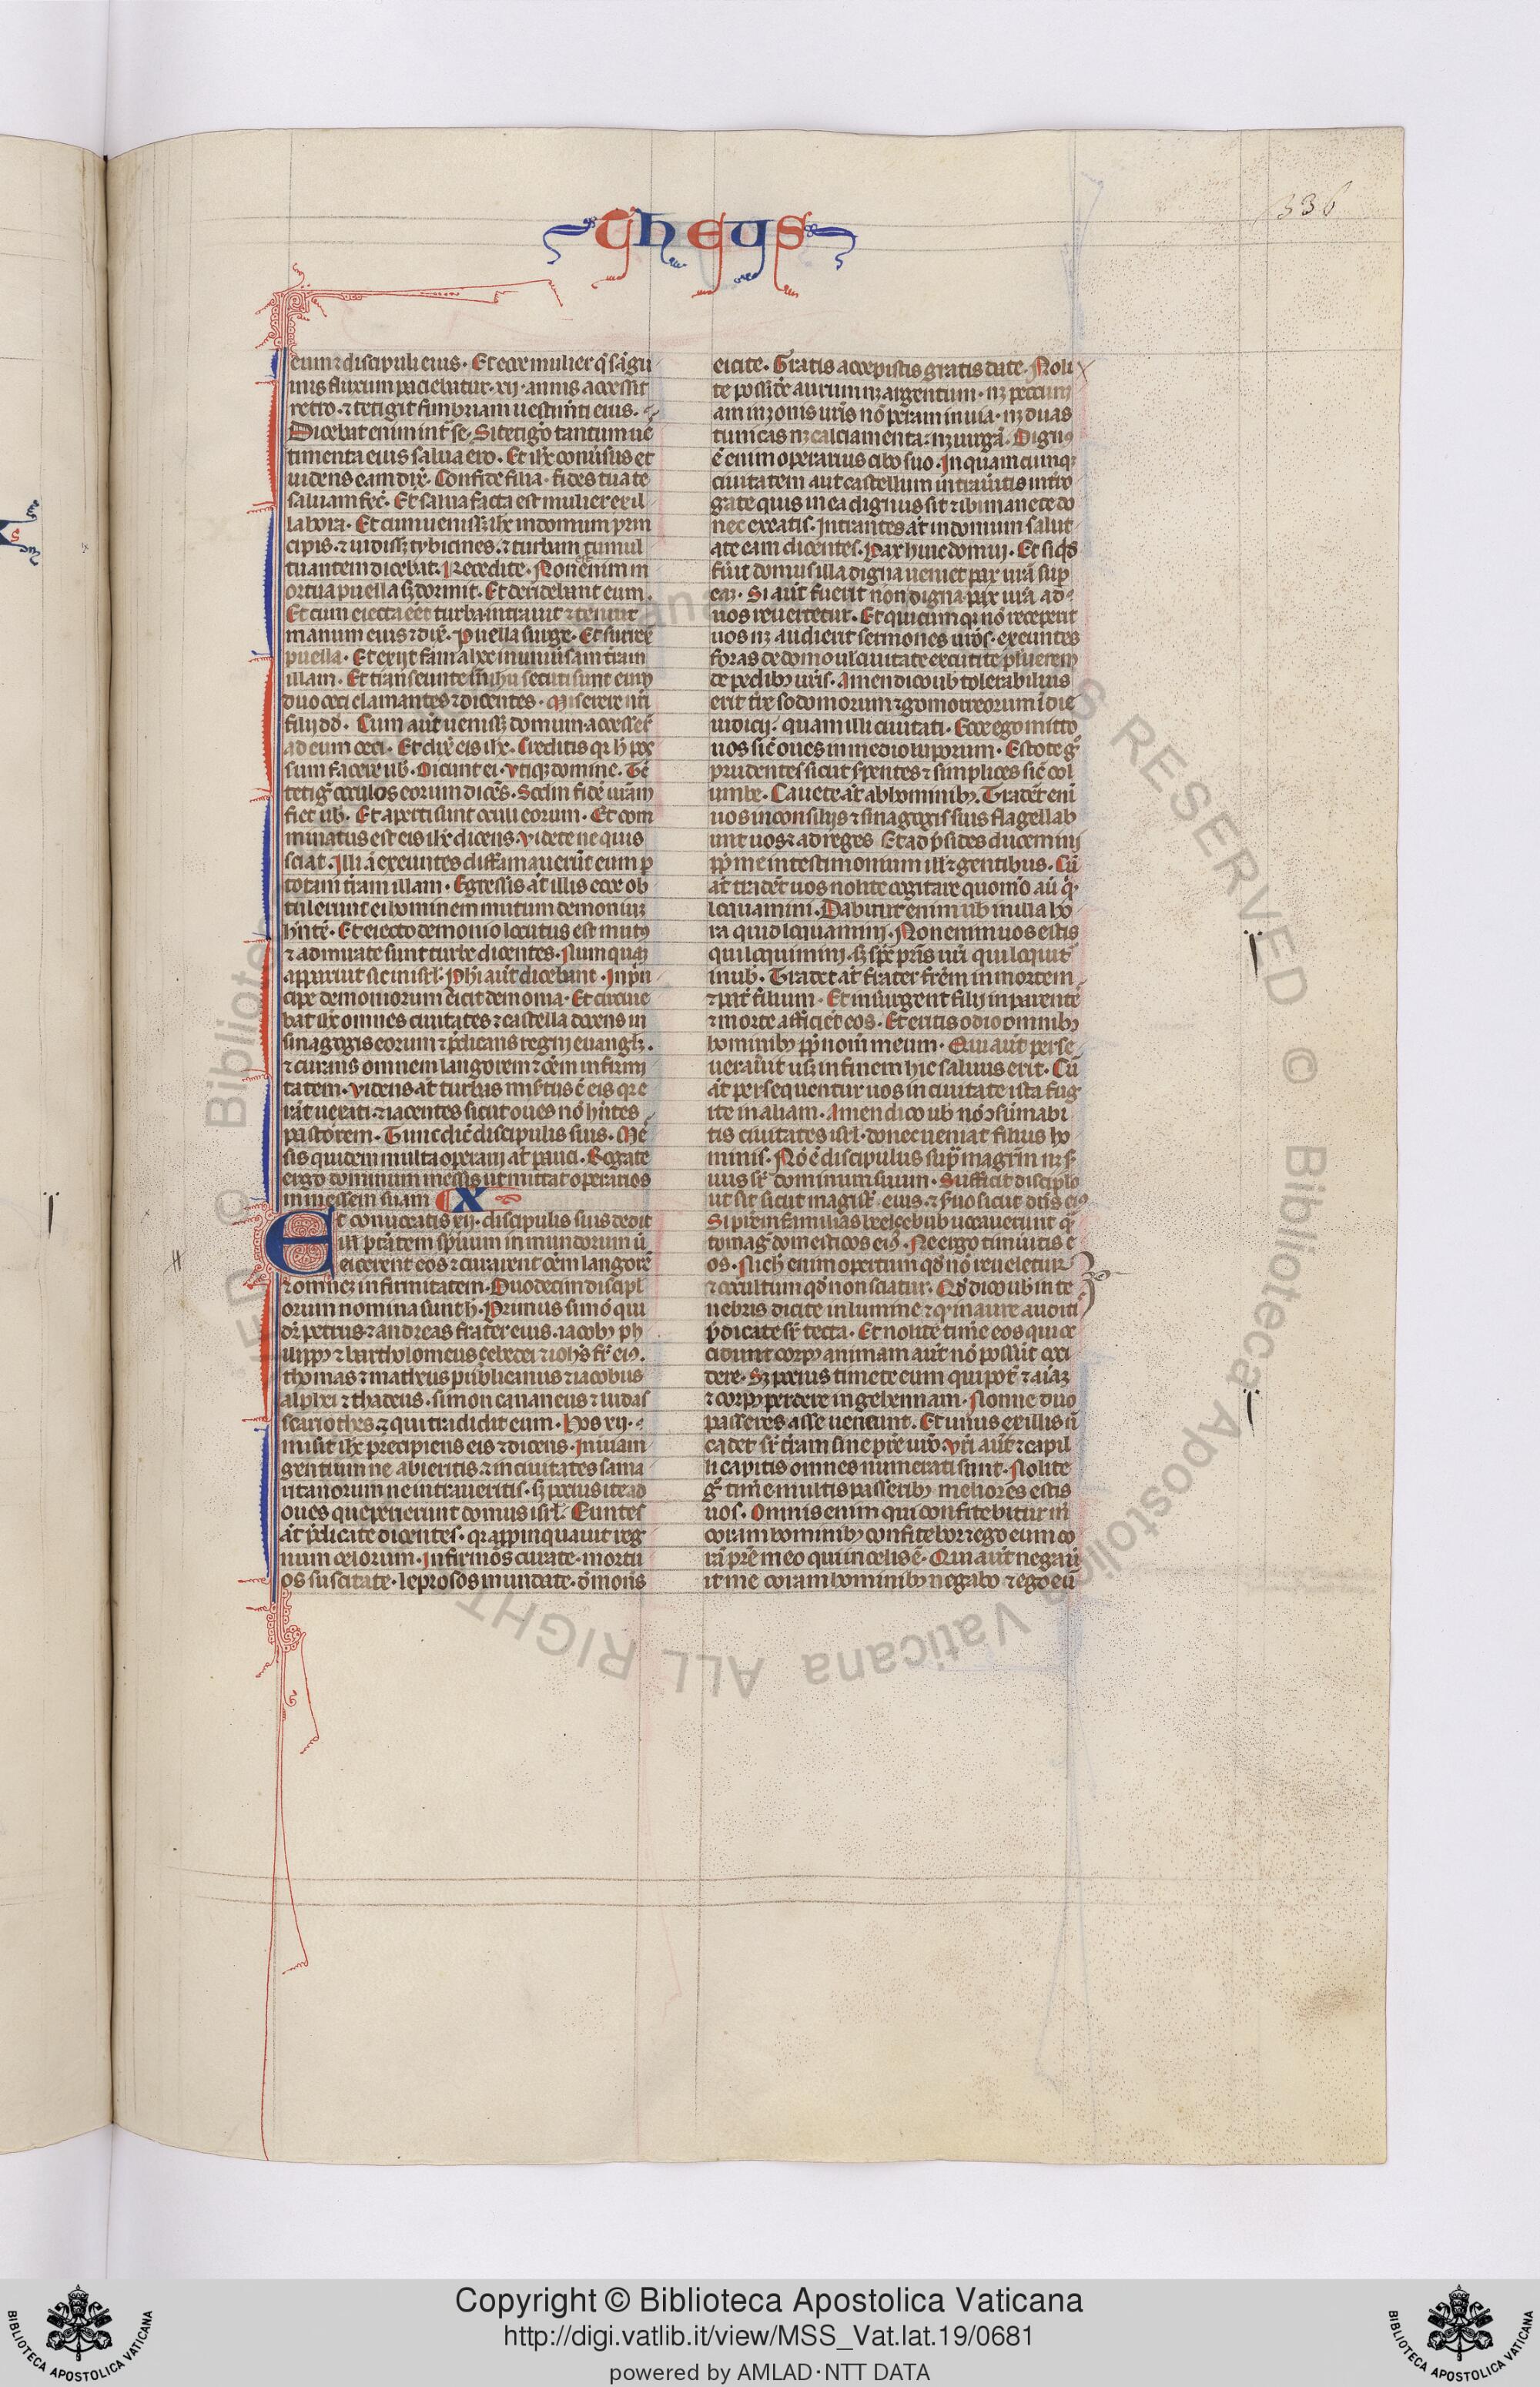 336
theus
eum ⁊ discipuli eius. Et ecce mulier q̄ sāgui
nis fluxum paciebatur xij annis accessit
retro ⁊ tetigit fimbriam uestimēti eius.
Dicebat enim int̄ se. Si tetigo tantum ue
timenta eius salua ero. Et ih̄c conuersus et
uidens eam dix̄. Confide filia fides tua te
saluam fec̄. Et salua facta est mulier ex il
la hora. Et cum uenissꝫ ih̄c in domum prin
cipis ⁊ uidissꝫ tybicines ⁊ turbam tumul
tuantem dicebat. Recedite. Non ē enim m
ortua puella sꝫ dormit. Et deridebant eum.
Et cum eiecta eēt turba intrauit ⁊ tenuit
manum eius ⁊ dix̄. Puella surge. Et surrex̄
puella. Et exijt fama hec in uniu̓sam t̄ram
illam. Et transeunte inde ih̄u secuti sunt eum
duo ceci clamantes ⁊ dicentes. Miserere nr̄i
fili dd̄. Cum aut̄ uenissꝫ domum accesser̄
ad eum ceci. Et dix̄ eis ih̄c. Creditis qr h̄ pos
sum facere uob̄. Dicunt ei. Utiqꝫ domine. Tc̄
tetig̓ oculos eorum dicēs. Scd̄m fidē ur̄am
fiet uob̄. Et aperti sunt oculi eorum. Et com
minatus est eis ih̄c dicens. Videte ne quis
sciat. Illi a̓ exeuntes diffamauerūt eum p
totam t̄ram illam. Egressis at̄ illis ecce ob
tulerunt ei hominem mutum demonium
hn̄tē. Et eiecto demonio locutus est mutꝰ
⁊ admirate sunt turbe dicentes. Numquam
apparuit sic in isrl̄. Phi aut̄ dicebant. In pn̄
cipe demoniorum eicit demonia. Et circuie
bat ih̄c omnes ciuitates ⁊ castella docens in
sinagogis eorum ⁊ p̄dicans regnj euanglꝫ.
⁊ curans omnem langorem ⁊ oēm infirmi
tatem. Videns at̄ turbas misertus ē eis qr e
rāt uexati ⁊ iacentes sicut oues nō hn̄tes
pastorem. Tunc dic̄ discipulis suis. Mes
sis quidem multa operarij at̄ pauci. Rogate
ergo dominum messis ut mittat operarios
in messem suam X
Et conuocatis xij. discipulis suis dedit
ill̄ ptātem spirituum inmundorum ut
eicerent eos ⁊ curarent oēm langorē
⁊ omnem infirmitatem. Duodecim discipl̄
orum nomina sunt h̄. Primus simō qui
dr̄ petrus ⁊ andreas frater eius. iacobꝰ ph
ilippꝰ ⁊ bartholomeus zebedei ⁊ iohs fr̄ eiꝰ.
thomas ⁊ matheus publicanus ⁊ iacobus
alphei ⁊ thadeus. simon cananeus ⁊ iudas
scariothes ⁊ qui tradidit eum. Hos xij.
misit ih̄c precipiens eis ⁊ dicens. In uiam
gentium ne abieritis ⁊ in ciuitates sama
ritanorum ne intraueritis. sꝫ pocius ite ad
oues que perierunt domus isrl̄. Euntes
at̄ p̄dicate dicentes. qr appinquauit reg
num celorum. Infirmos curate. mortu
os suscitate. leprosos mundate. demones
eicite. Gratis accepistis gratis date. Noli
te possidē aurum nꝫ argentum. nꝫ peccuni
am in zonis ur̄is nō peram in uia. nꝫ duas
tunicas nꝫ calciamenta. nꝫ uirgā. Dignꝰ
ē enim operarius cibo suo. In quamcumqꝫ
ciuitatem aut castellum intrau̓itis intro
gate quis in ea dignus sit ⁊ ibi manete do
nec exeatis. Intrantes at̄ in domum salut
ate eam dicentes. Pax huic domuj. Et siqd̓
fu̓it domus illa digna ueniet pax ur̄a sup
eaꝫ. Si aut̄ fuerit non digna pax ur̄a ad
uos reuertetur. Et quicumqꝫ nō receperit
uos nꝫ audierit sermones ur̄os. exeuntes
foras de domo ul̄ ciuitate excutite puluerem
de pedibꝰ ur̄is. Amen dico uob̄ tolerabilius
erit t̄re sodomorum ⁊ gomorreorum ī die
iudicij. quam illi ciuitati. Ecce ego mitto
uos sic̄ oues in medio luporum. Estote g̊
prudentes sicut s̓pentes ⁊ simplices sic̄ col
umbe. Cauete at̄ ab hominibꝰ. Tradēt eni
uos in consilijs ⁊ sinagogis suis flagellab
unt uos ⁊ ad reges Et ad p̓sides duceminj
pp̄ me in testimonium ill̄ ⁊ gentibus. Cū
at̄ tradēt uos nolite cogitare quomō aū q̓
loquamini. Dabitur enim uob̄ in illa ho
ra quid loquaminj. Non enim uos estis
qui loquiminj. sꝫ spc̄ pr̄is ur̄i qui loquit̄
in uob̄. Tradet at̄ frater fr̄em in mortem
⁊ pat̄ filium. Et insurgent filij in parente
⁊ morte afficiēt eos. Et eritis odio omnibꝰ
hominibꝰ pp̄ nom̄ meum. Qui aut̄ perse
uerau̓it usqꝫ in finem hic saluus erit. Cū
at̄ persequentur uos in ciuitate ista fug
ite in aliam. Amen dico uob̄ nō ꝯsumabi
tis ciuitates isrl̄. donec ueniat filius ho
minis. Nō ē discipulus sup̄ magr̄m nꝫ s̓
uus sr̄ dominum suum. Sufficit disciplo
ut sit sicut magist̄ eius. ⁊ s̓uo sicut dn̄s eiꝰ
Si pr̄em familias beelzebub uocauerunt q̄
to mag̓ domesticos eiꝰ. Ne ergo timu̓itis e
os. Nich̄ enim opertum qd̓ nō reueletur
⁊ occultum qd̓ non sciatur. Qd̓ dico uob̄ in te
nebris dicite in lumine ⁊ qd̓ in aure auditi
p̓dicate sr̄ tecta. Et nolite tim̓e eos qui oc
cidunt corpꝰ animam aut̄ nō possūt occi
dere. Sꝫ pocius timete eum qui pot̄ ⁊ aīaꝫ
⁊ corpꝰ perdere in gehennam. Nonne duo
passeres asse ueneunt. Et unus ex illis n̄
cadet sr̄ t̄ram sine pr̄e ur̄o. Vr̄i aut̄ ⁊ capil
li capitis omnes numerati sunt. Nolite
g̊ tim̓e multis passeribꝰ meliores estis
uos. Omnis enim qui confitebitur m̄
coram hominibꝰ confitebor ⁊ ego eum co
rā pr̄e meo qui in celis ē. Qui aut̄ negau̓
it me coram hominibꝰ negabo ⁊ ego eū
© Biblioteca Apostolica Vaticana ALL RIGHTS RESERVED
Copyright © Biblioteca Apostolica Vaticana
http://digi.vatlib.it/view/MSS_Vat.lat.19/0681
powered by AMLAD·NTT DATA
BIBLIOTECA APOSTOLICA VATICANA
BIBLIOTECA APOSTOLICA VATICANA